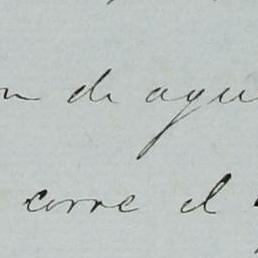 de agu
corre el